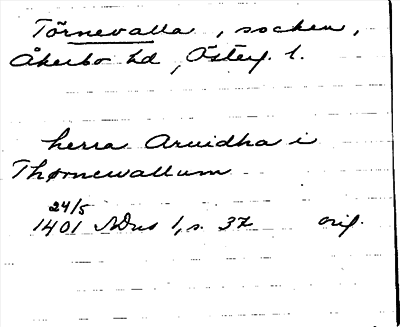 Törnevalla, socken,
Åkerbo hd, Österg. l.
herra Aruidha i
Thørnewallum
24/5
1401 NDns 1, s. 37 orig.